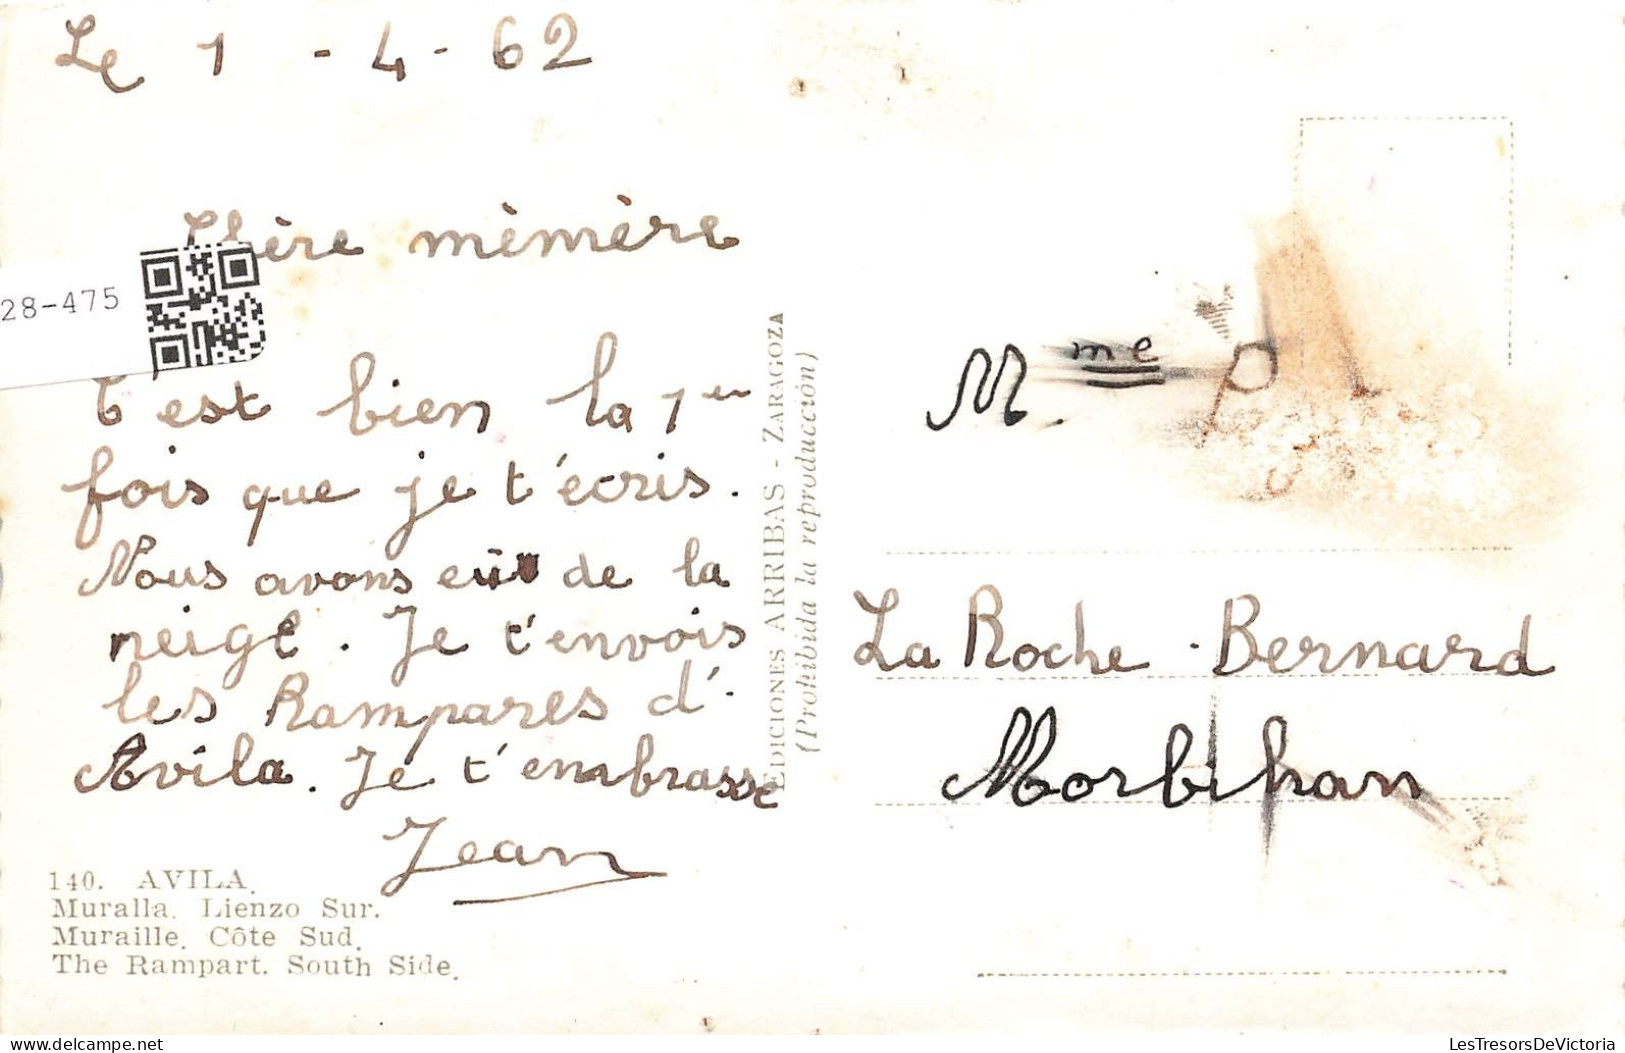 Le 1 - 4 - 62
Chère mèmère
28-475
C'est bien la 1er
fois que je t'écris.
Nous avons eu de la
neige. Je t'envois
les Rampares d'
Avila. Je t'embrasse
Jean
140. AVILA.
Muralla. Lienzo Sur.
Muraille. Côte Sud.
The Rampart. South Side.
EDICIONES ARRIBAS - ZARAGOZA
(Prohibida la reproducción)
Mme
La Roche-Bernard
Morbihan
delcampe.net
LesTresorsDeVictoria